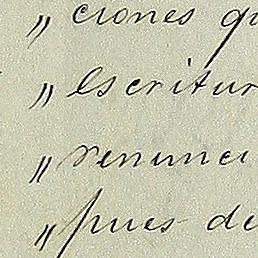 „ ciones qu
„ escritur
„ renunci
„ pues de